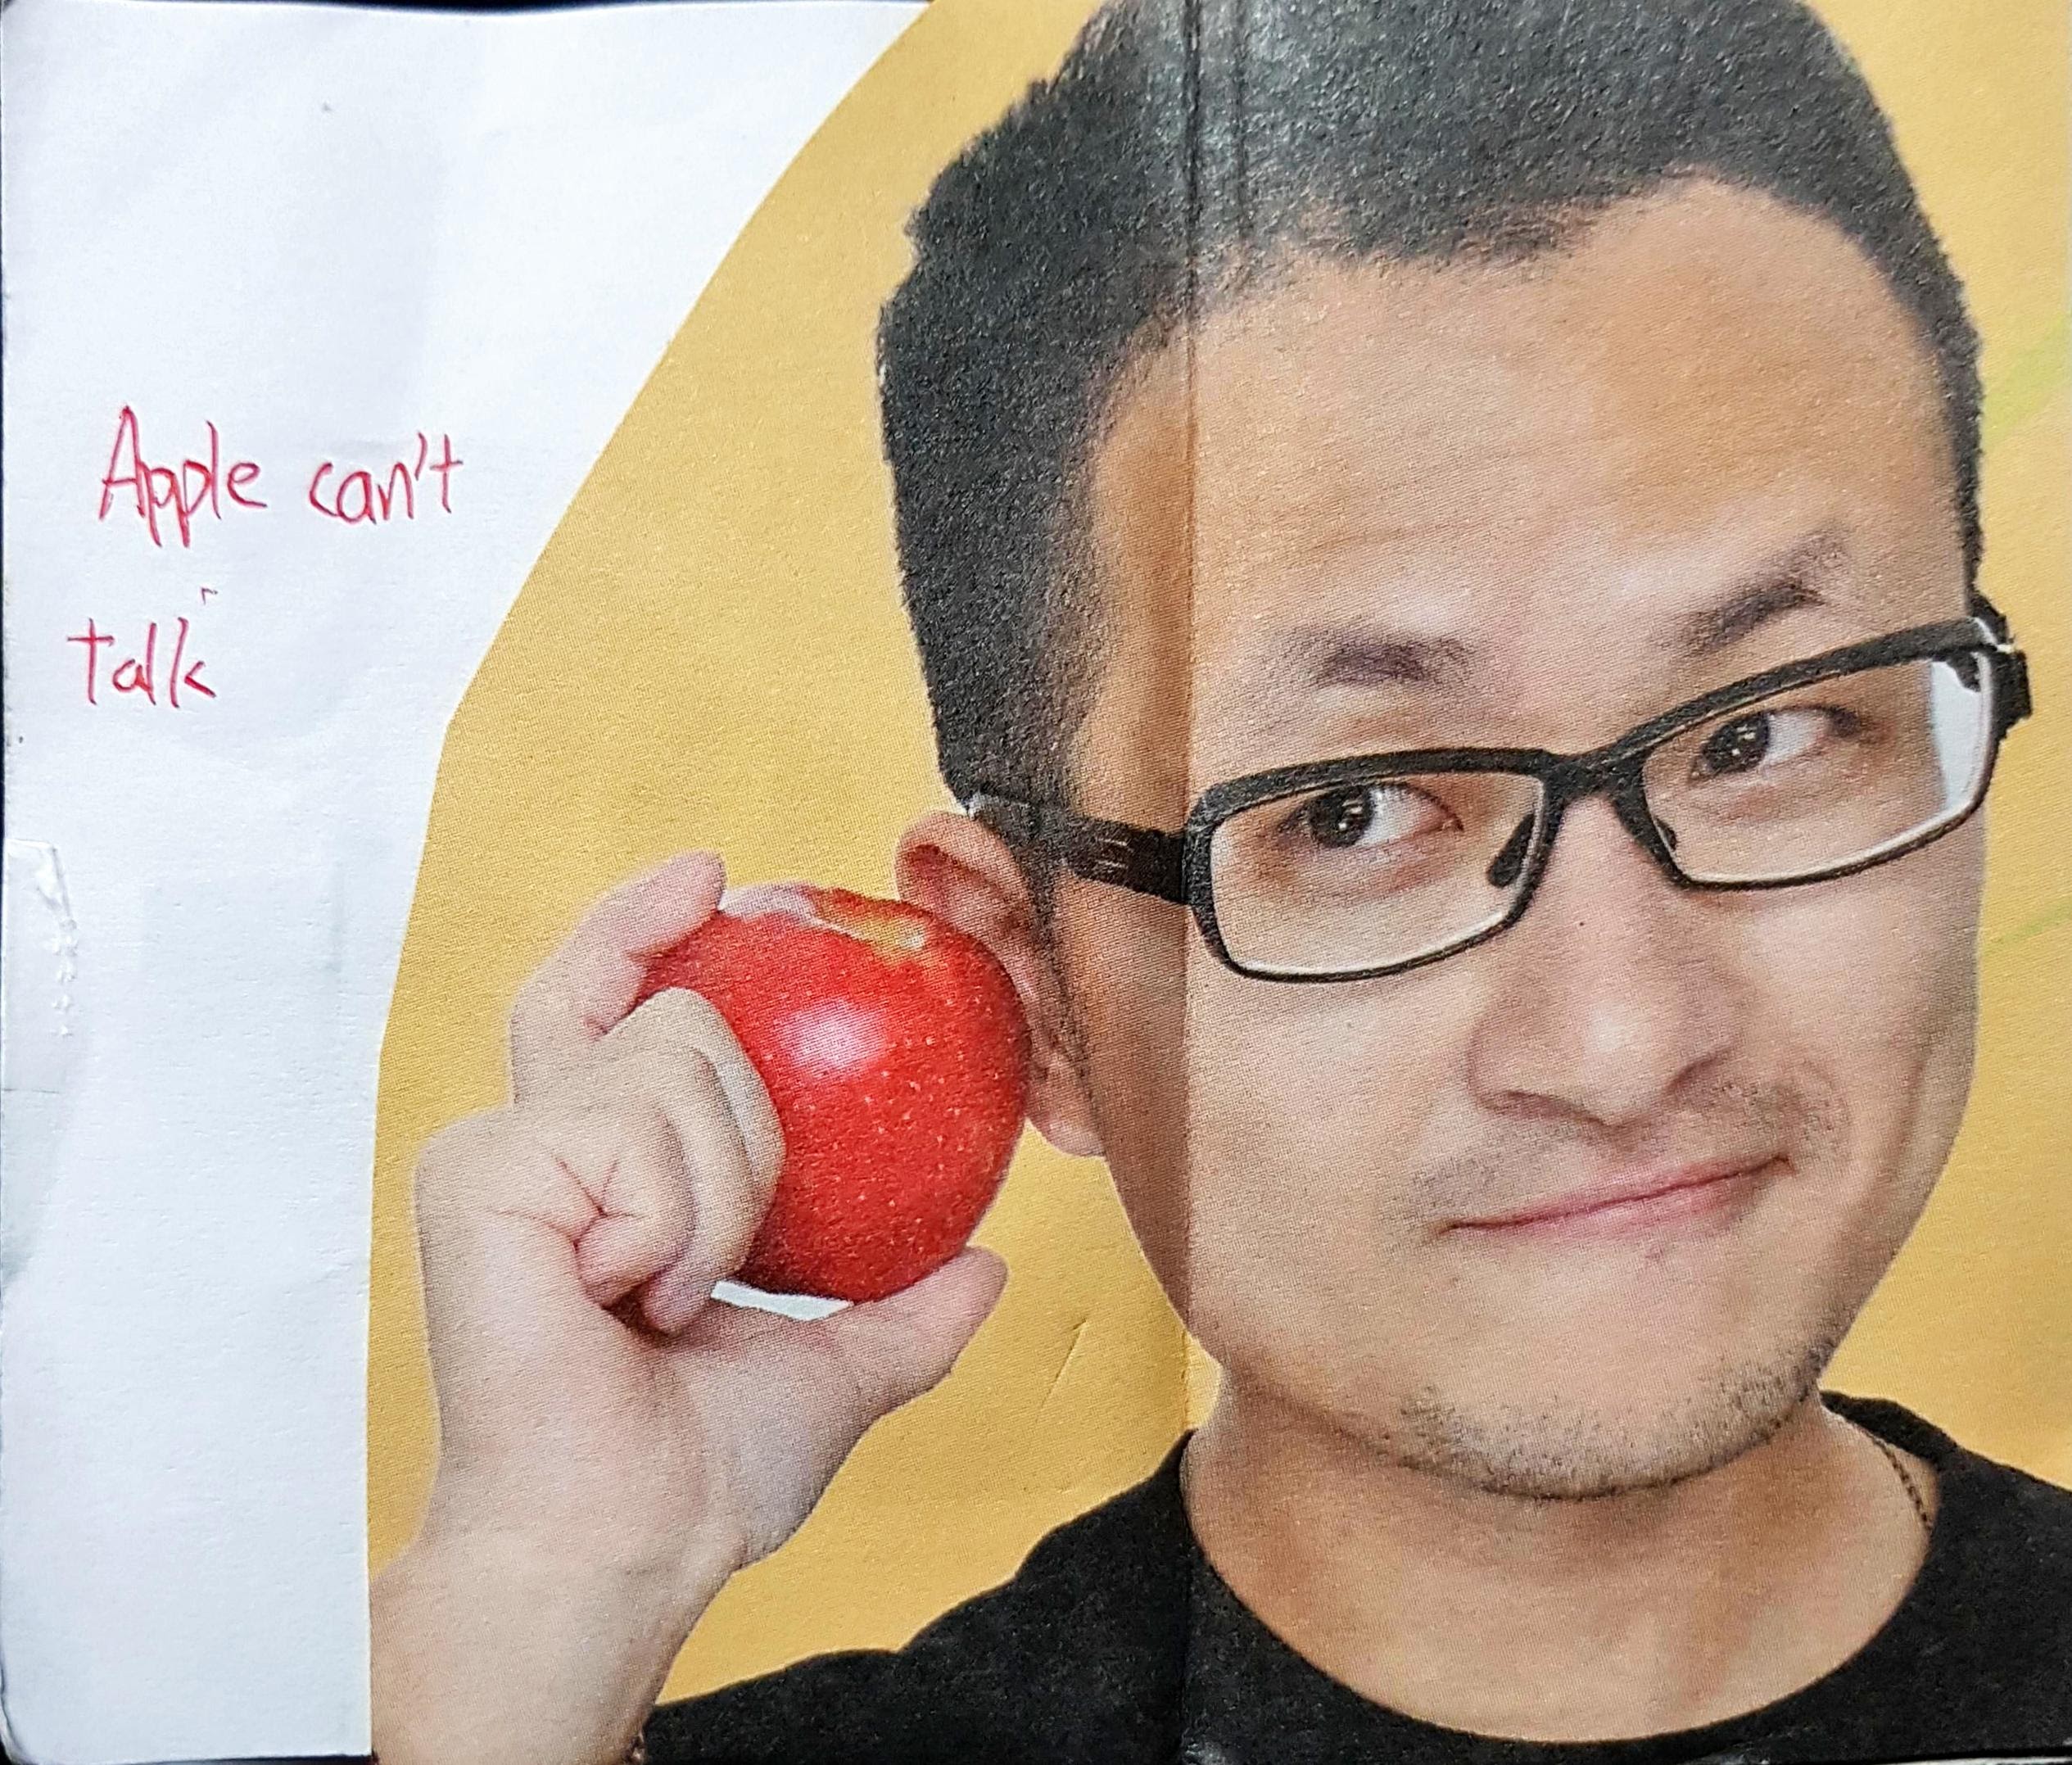 Apple can't
talk